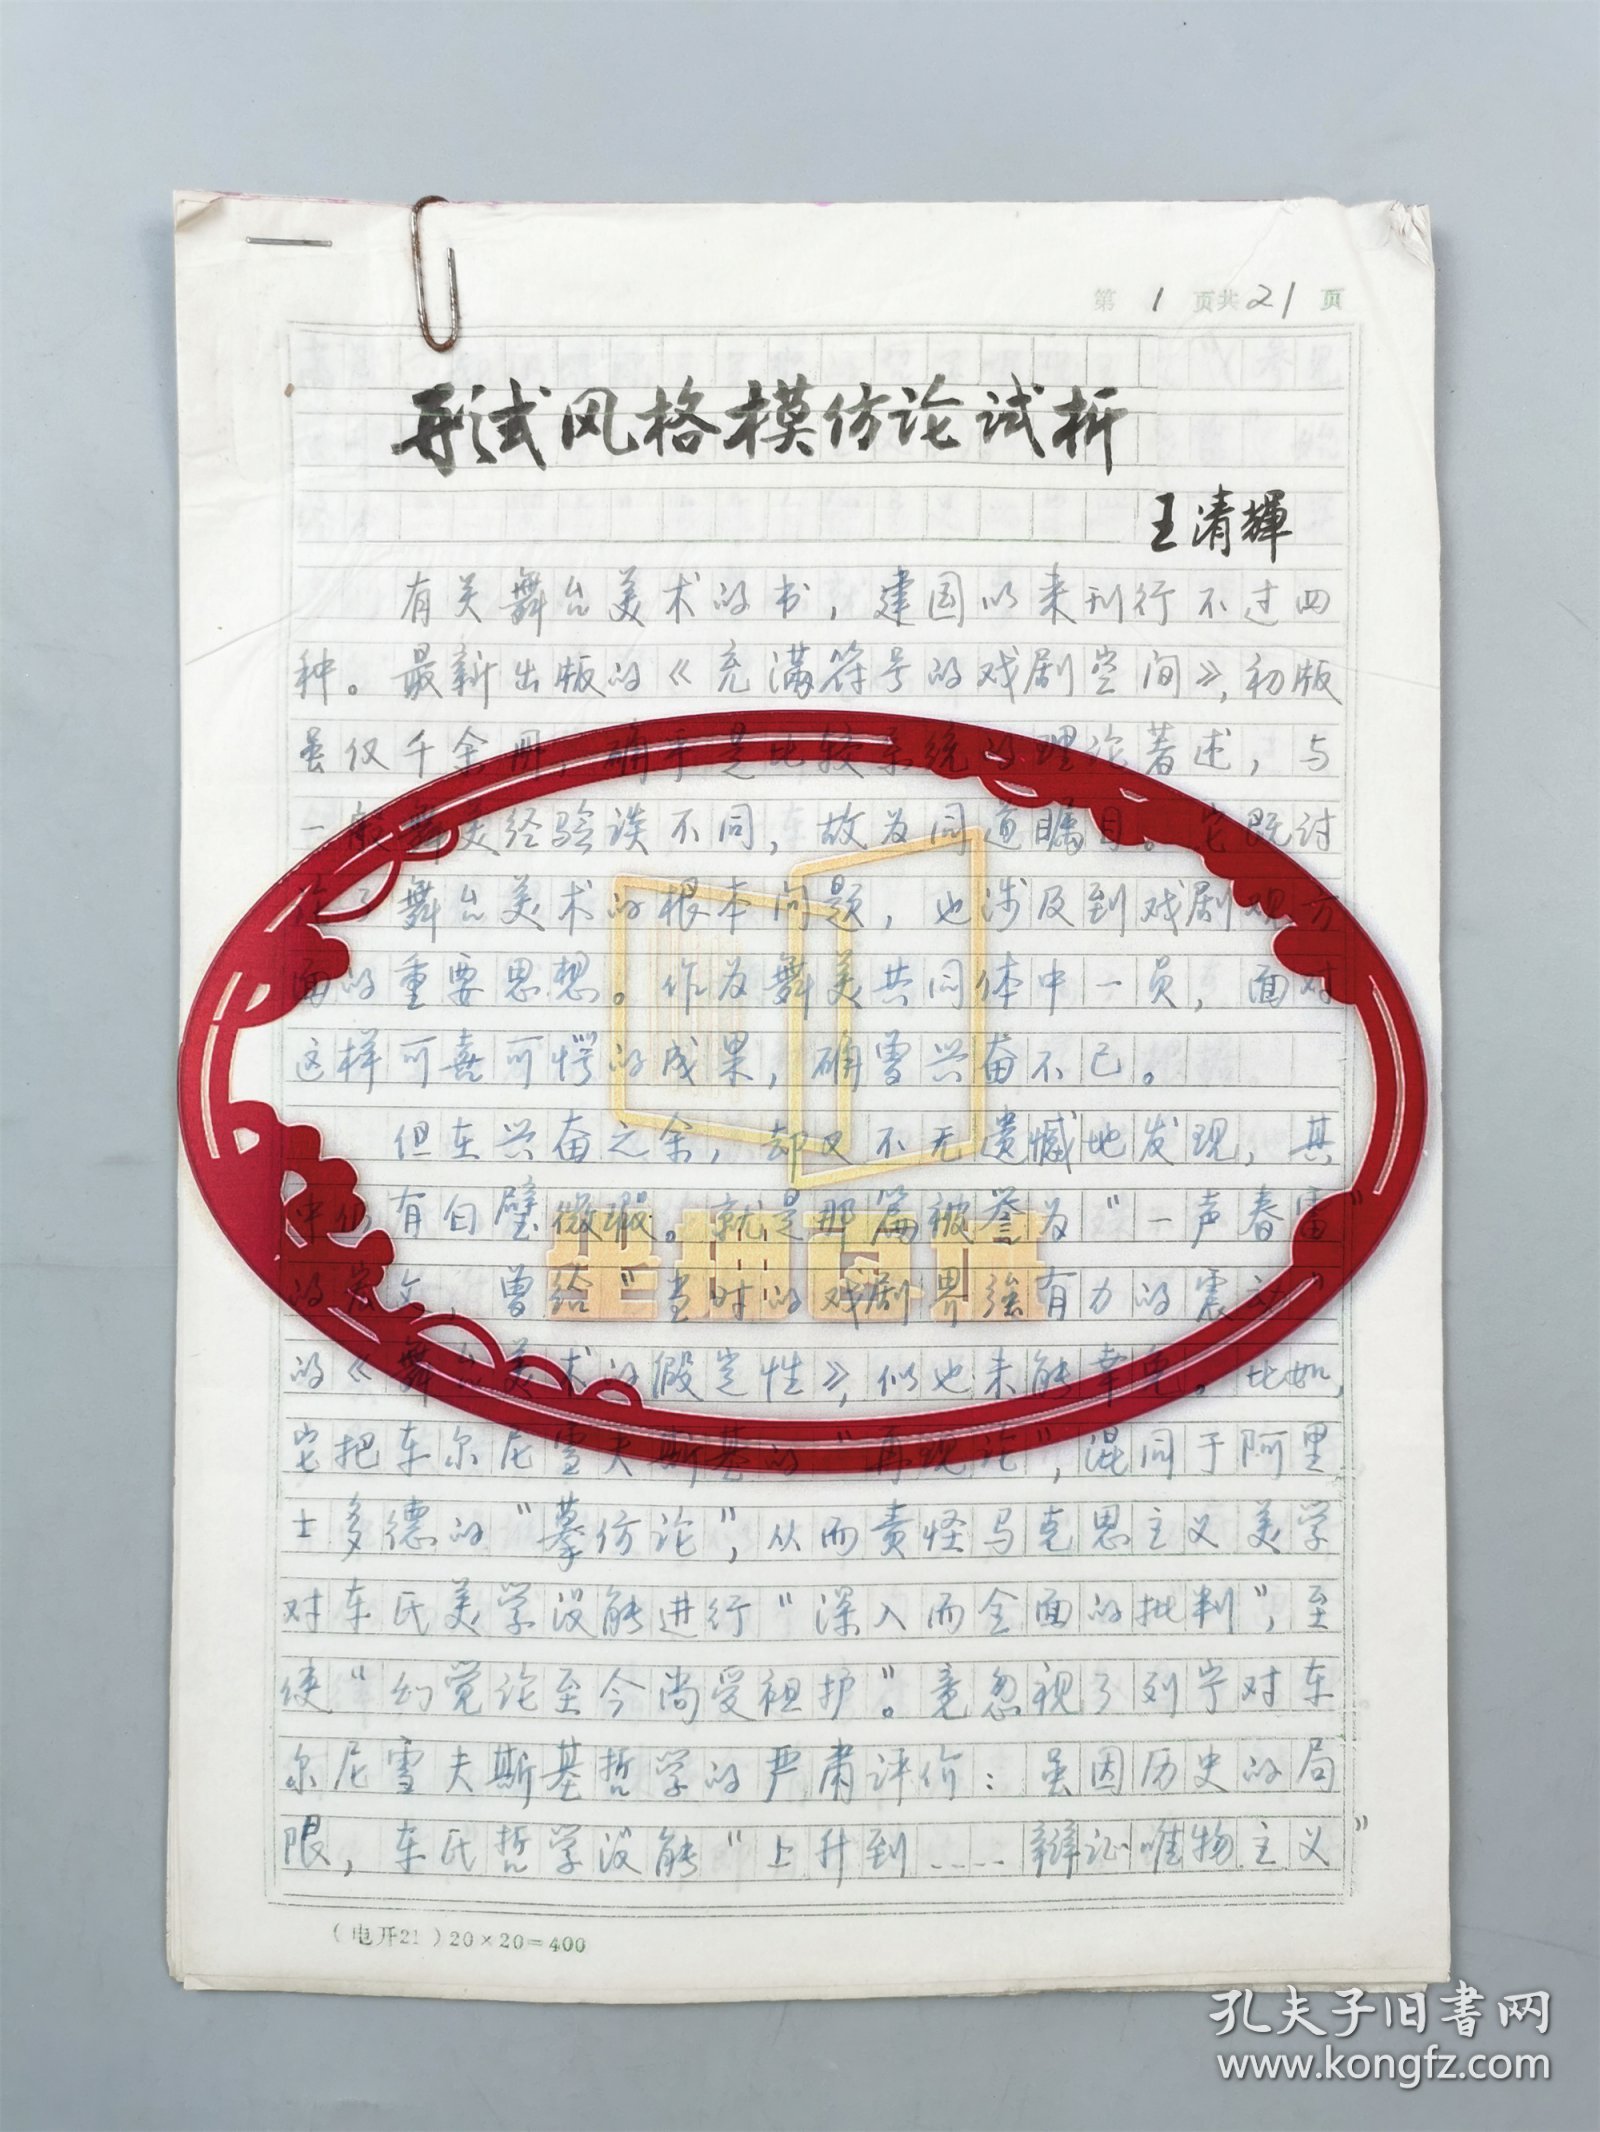 第 1 页共 21 页
形式风格模仿论试析
王清辉
有关舞台美术的书，建国以来刊行不过四
种。最新出版的《充满符号的戏剧空间》，初版
虽仅千余册，确乎是比较系统的理论著述，与
一般舞美经验谈不同，故为同道瞩目。它既讨
论了舞台美术的根本问题，也涉及到戏剧观方
面的重要思想。作为舞美共同体中一员，面对
这样可喜可愕的成果，确曾兴奋不已。
但在兴奋之余，却又不无遗憾地发现，其
中仍有白璧微瑕。就是那篇被誉为“一声春雷”
的宏文，曾给“当时的戏剧界强有力的震动”
的《舞台美术的假定性》，似也未能幸免。比如，
它把车尔尼雪夫斯基的“再现论”，混同于阿里
士多德的“摹仿论”，从而责怪马克思主义美学
对车氏美学没能进行“深入而全面的批判”，至
使“幻觉论至今尚受袒护”。竟忽视了列宁对车
尔尼雪夫斯基哲学的严肃评价：虽因历史的局
限，车氏哲学没能“上升到……辩证唯物主义”
（电开21）20×20=400
孔夫子旧书网
www.kongfz.com